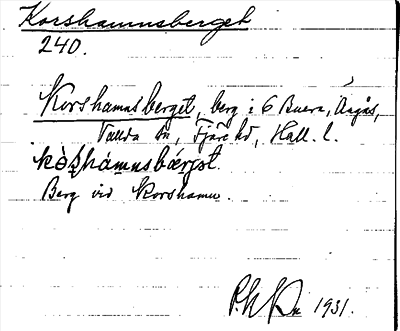 Korshamnsberget
240.
Korshamnsberget, berg i 6 Buera, Årgås,
Vallda sn, Fjäre hd, Hall. l.
kòʂhámnsbærgət.
Berg vid Korshamn.
1931.